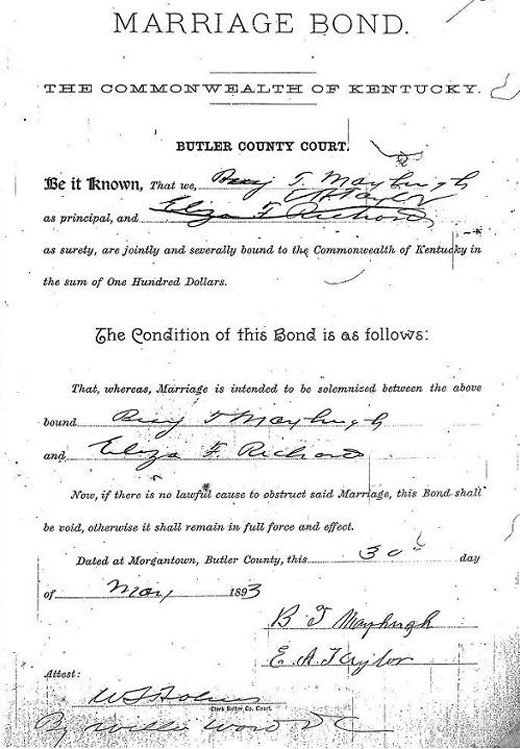 MARRIAGE BOND.
THE COMMONWEALTH OF KENTUCKY.
BUTLER COUNTY COURT.
Be it Known, That we, Benj T Mayhugh
E A Taylor
as principal, and Eliza F Richards
as surety, are jointly and severally bound to the Commonwealth of Kentucky in
the sum of One Hundred Dollars.
The Condition of this Bond is as follows:
That, whereas, Marriage is intended to be solemnized between the above
bound Benj T Mayhugh
and Eliza F Richards
Now, if there is no lawful cause to obstruct said Marriage, this Bond shall
be void, otherwise it shall remain in full force and effect.
Dated at Morgantown, Butler County, this 30th day
of May 1893
B T Mayhugh
E. A. Taylor
Attest:
W S Holmes
Clerk Butler Co. Court.
By Willie Word D C